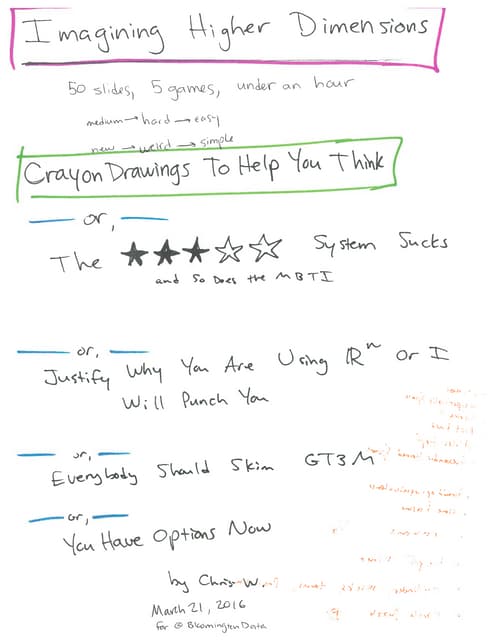 Imagining Higher Dimensions
50 slides, 5 games, under an hour
medium → hard → easy
new → weird → simple
Crayon Drawings To Help You Think
or,
The ★★★☆☆ System Sucks
and So Does the MBTI
or,
Justify Why You Are Using ℝⁿ Or I
Will Punch You
or,
Everybody Should Skim GT3M
or,
You Have Options Now
by Chris W.
March 21, 2016
for @BloomingtonData